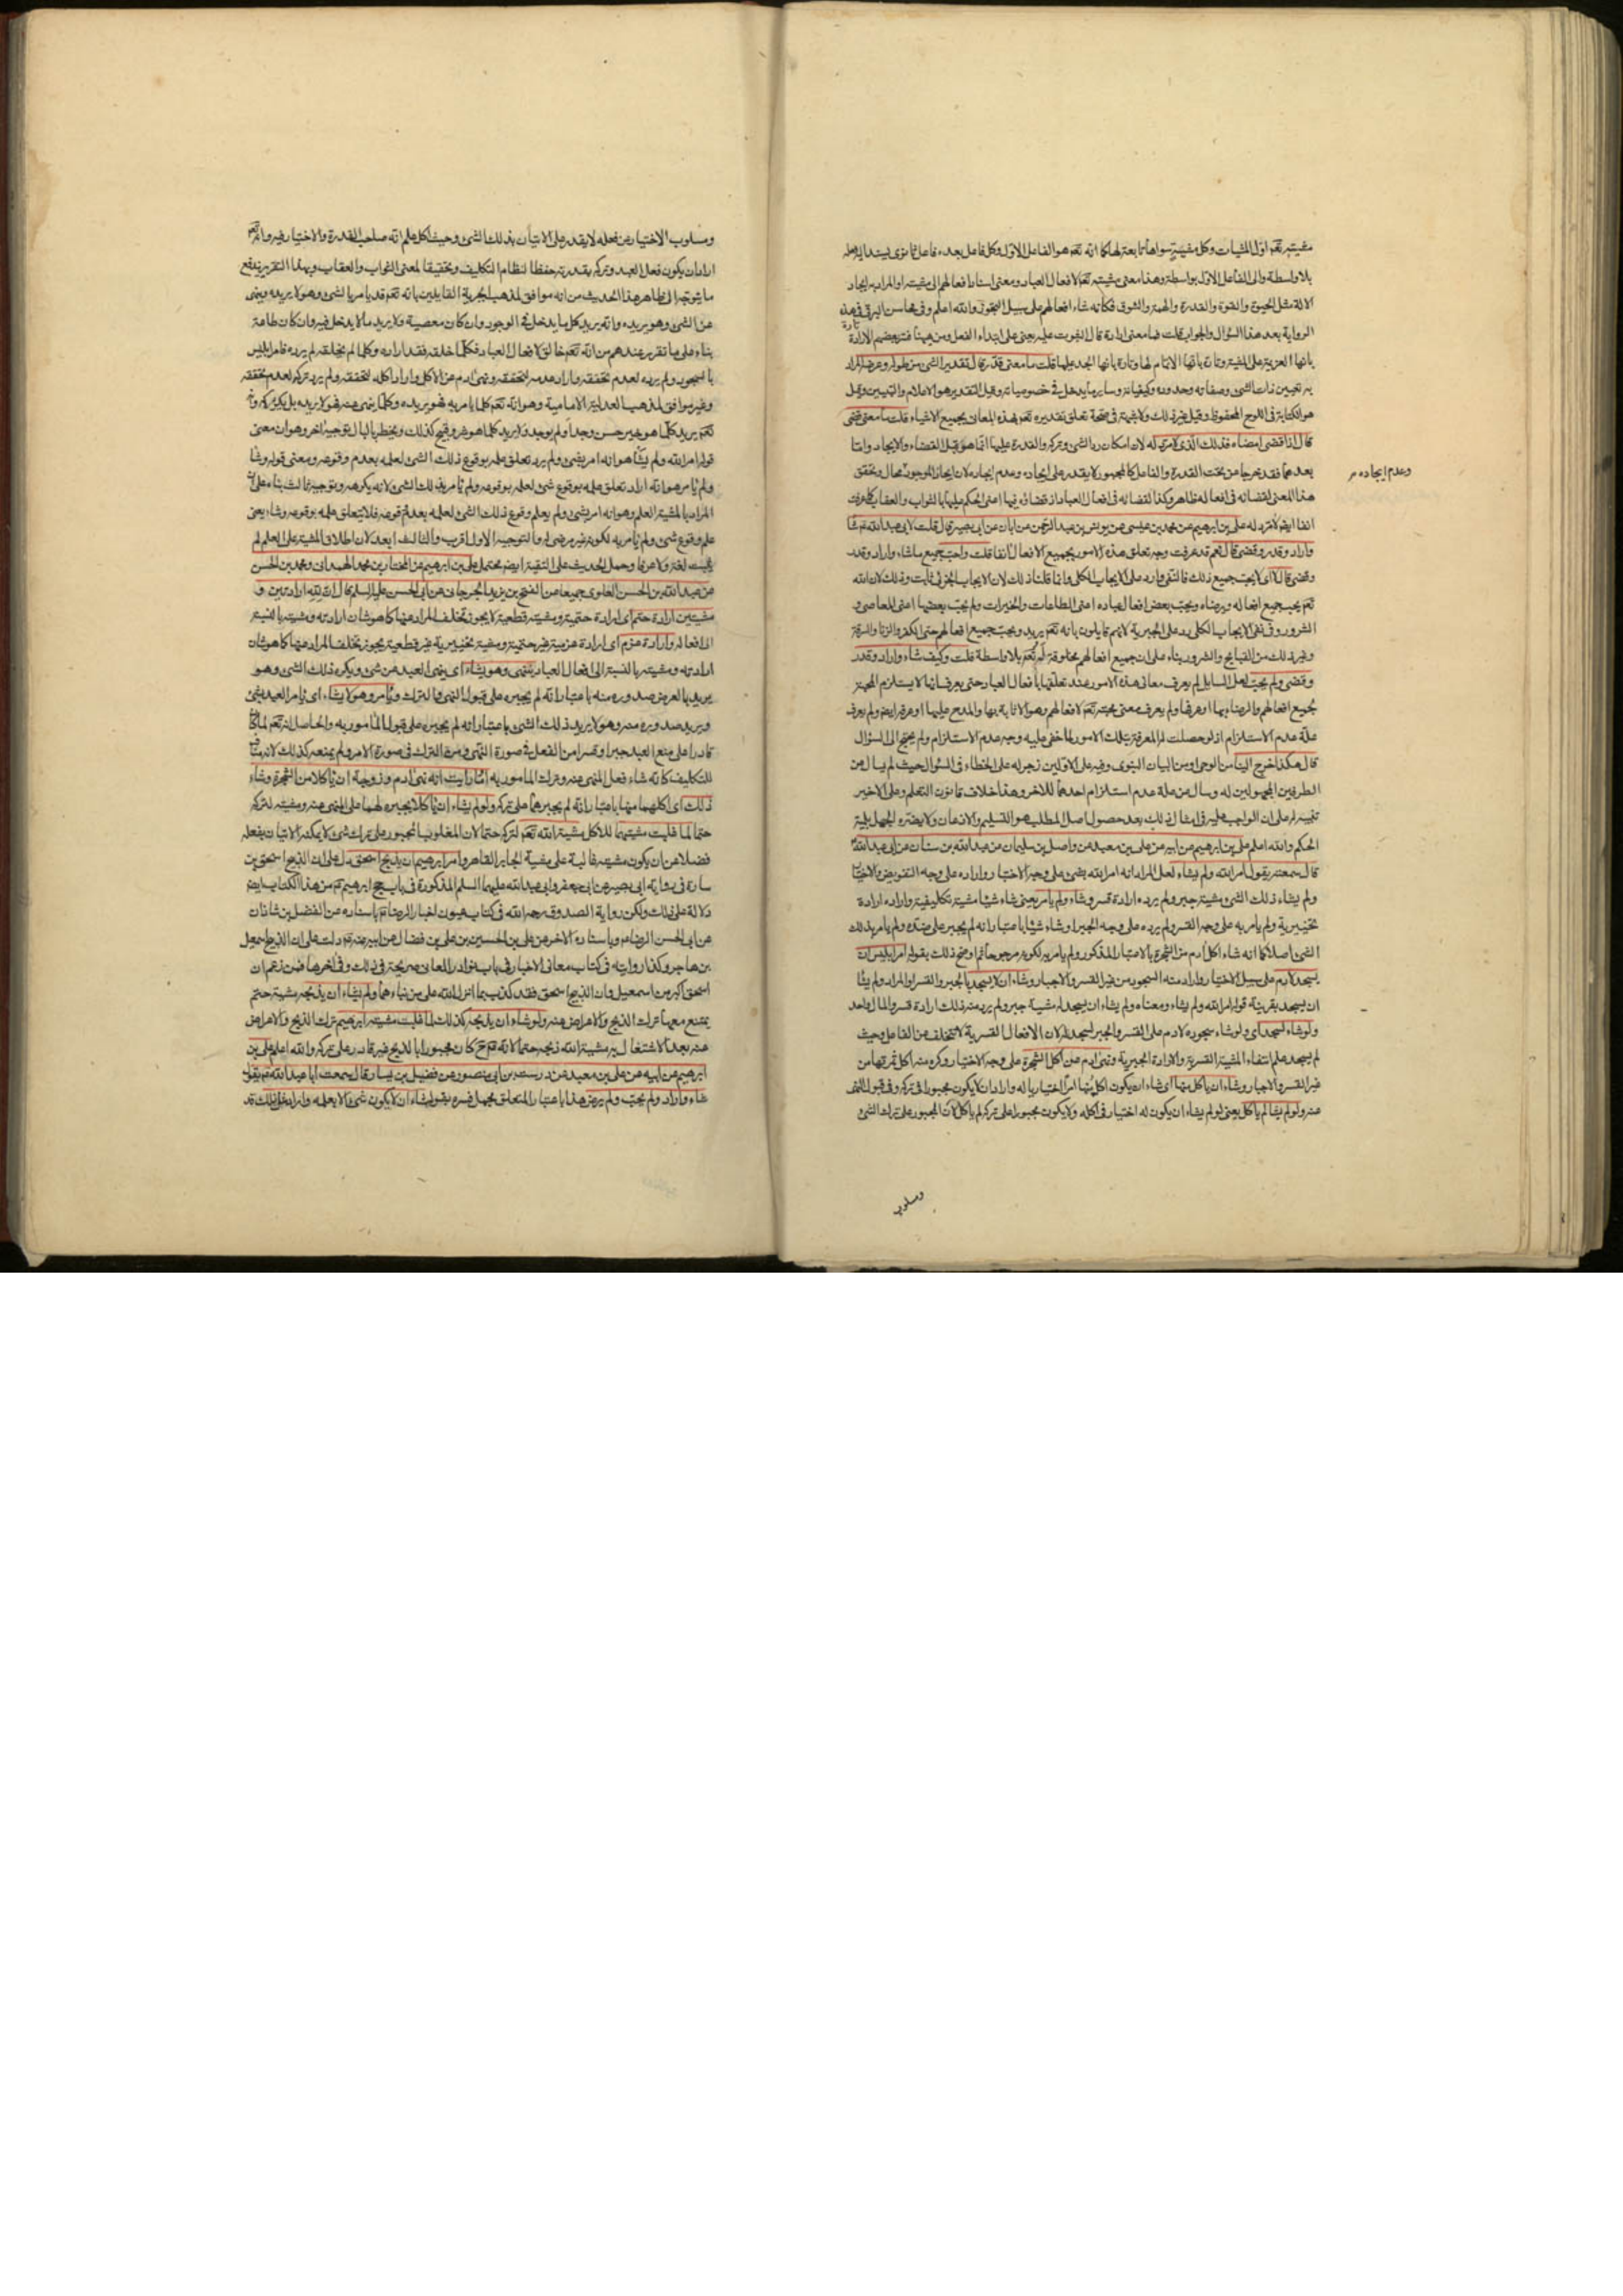 مشيته تعم اول المشيات وكل مشية سواها تابعة لها كما انه تعم هو الفاعل الاول وكل فاعل بعده فاعل ثانوى يستند اليه
بلا واسطة والى الفاعل الاول بواسطة وهذا معنى مشيته تعم لافعال العباد ومعنى اسناد افعالهم الى مشيته او المراد به ايجاد
الالة مثل الحيوة والقوة والقدرة والهمة والشوق فكأنه شاء افعالهم على سبيل التجوز والله اعلم وفى محاسن البرقى فى هذه
الرواية بعد هذا السؤال والجواب قلت فما معنى اراد قال الثبوت عليه يعنى على ابتداء الفعل ومن هيهنا فسر بعضهم الارادة تارة
بانها العزيمة على المشية وتارة بانها الاتمام لها وتارة بانها الجد عليها قلت ما معنى قدر قال تقدير الشئ من طوله وعرضه المراد
به تعيين ذات الشئ وصفاته وحدوده وكيفياته وساير ما يدخل فى خصوصياته وقيل التقدير هو الاعلام والتبيين وقيل
هو الكتابة فى اللوح المحفوظ وقيل غير ذلك ولا شبهة فى صحة تعلق تقديره تعم بهذه المعانى بجميع الاشياء قلت ما معنى قضى
قال اذا قضى امضاه فذلك الذى لا مرد له لان امكان رد الشئ وتركه والقدرة عليها انما هو قبل القضاء والايجاد واما
بعدهما فقد خرجا من تحت القدرة والفاعل كالمجبور لا يقدر على ايجاده وعدم ايجاده لان ايجاد الموجود محال وتحقق
وعدم ايجاده
هذا المعنى لقضائه فى افعاله ظاهر وكذا لقضائه فى افعال العباد اذ قضاؤه فيها اعنى الحكم عليها بالثواب والعقاب كما عرفت
انفا ايضم لا مرد له على بن ابرهيم عن محمد بن عيسى عن يونس بن عبد الرحمن عن ابان عن ابى بصير قال قلت لابى عبد الله عم شاء
واراد وقدر وقضى قال نعم قد عرفت وجه تعلق هذه الامور بجميع الافعال انفا قلت واحب جميع ما شاء واراد وقدر
وقضى قال لا اى لا يحب جميع ذلك فالنفى وارد على الايجاب الكلى وانما قلنا ذلك لان الايجاب الجزئى ثابت وذلك لان الله
تعم يحب جميع افعاله ويرضاه ويحب بعض افعال عباده اعنى الطاعات والخيرات ولم يحب بعضها اعنى المعاصى و
الشرور وفى نفى الايجاب الكلى رد على الجبرية لانهم قايلون بانه تعم يريد ويحب جميع افعالهم حتى الكفر والزنا والسرقة
وغير ذلك من القبايح والشرور بناء على ان جميع افعالهم مخلوقة له تعم بلا واسطة قلت وكيف شاء واراد وقدر
وقضى ولم يحب لعل السايل لم يعرف معانى هذه الامور عند تعلقها بافعال العباد حتى يعرف انها لا يستلزم المحبة
بجميع افعالهم والرضاء بها او عرفها ولم يعرف معنى محبته تعم لافعالهم وهو الاثابة بها والمدح عليها او عرفه ايضم ولم يعرف
علة عدم الاستلزام اذ لو حصلت له المعرفة بتلك الامور لما خفى عليه وجه عدم الاستلزام ولم يحتج الى السؤال
قال هكذا خرج الينا من الوحى او من البيان النبوى وفيه على الاولين زجر له على الخطاء فى السؤال حيث لم يسال عن
الطرفين المجهولين له وسأل عن علة عدم استلزام احدهما للاخر وهذا خلاف قانون التعلم وعلى الاخير
تنبيه له على ان الواجب عليه فى امثال ذلك بعد حصول اصل المطلب هو التسليم والاذعان ولا يضره الجهل بلمية
الحكم والله اعلم على بن ابرهيم عن ابيه عن على بن معبد عن واصل بن سليمان عن عبد الله بن سنان عن ابى عبد الله
قال سمعته يقول امر الله ولم يشاء لعل المراد انه امر الله بشئ على وجه الاختيار واراده على وجه التفويض والاختيا
ولم يشاء ذلك الشئ مشية جبر ولم يرده ارادة قسر وشاء ولم يأمر يعنى شاء شيئا مشية تكليفية واراده ارادة
تخييرية ولم يأمر به على وجه القسر ولم يرده على وجه الجبر او شاء شيئا باعتبار انه لم يجبر على ضده ولم يامر بذلك
الشئ اصلا كما انه شاء اكل ادم من الشجرة بالاعتبار المذكور ولم يامر به لكونه مرجوحا ثم اوضح ذلك بقوله امر ابليس ان
يسجد لادم على سبيل الاختيار واراد منه السجود من غير القسر والاجبار وشاء ان لا يسجد بالجبر والقسر او المراد ولم يشأ
ان يسجد بقرينة قوله امر الله ولم يشاء ومعناه ولم يشاء ان يسجد له مشية جبر ولم يرد منه ذلك ارادة قسر والمال واحد
ولو شاء لسجد اى ولو شاء سجوده لادم على القسر والجبر لسجد له لان الافعال القسرية لا تتخلف عن الفاعل وحيث
لم يسجد علم انتفاء المشية القسرية والارادة الجبرية ونهى ادم عن اكل الشجرة على وجه الاختيار وكره منه اكل ثمرتها من
غير القسر والاجبار وشاء ان ياكل منها اى شاء ان يكون اكله منها امرا اختياريا له واراد ان لا يكون مجبورا فى تركه وفى قبول النهى
عنه ولو لم يشا لم ياكل يعنى لو لم يشاء ان يكون له اختيار فى اكله ولا يكون مجبورا على تركه لم ياكل لان المجبور على ترك الشئ
ومسلوب
ومسلوب الاختيار عن فعله لا يقدر على الاتيان بذلك الشئ وحيث اكل علم انه صاحب القدرة والاختيار فيه وانه تعم
اراد ان يكون فعل العبد وتركه بقدرته حفظا لنظام التكليف وتحقيقا لمعنى الثواب والعقاب وبهذا التقرير يندفع
ما يتوجه الى ظاهر هذا الحديث من انه موافق لمذهب الجبرية القايلين بانه تعم قد يامر بالشئ وهو لا يريده وينهى
عن الشئ وهو يريده وانه يريد كل ما يدخل فى الوجود وان كان معصية ولا يريد ما لا يدخل فيه وان كان طاعة
بناء على ما تقرر عندهم من انه تعم خالق لافعال العباد فكلما خلقه فقد اراده وكلما لم يخلقه لم يرده فامر ابليس
بالسجود ولم يرده لعدم تحققه واراد عدمه لتحققه ونهى ادم عن الاكل واراد اكله لتحققه ولم يرد تركه لعدم تحققه
وغير موافق لمذهب العدلية الامامية وهو انه تعم كلما يامر به فهو يريده وكلما ينهى عنه فهو لا يريده بل يكرهه وانه
تعم يريد كلما هو خير حسن وجد او لم يوجد ولا يريد كلما هو شر وقبيح كذلك ويخطر بالبال توجيه اخر وهو ان معنى
قوله امر الله ولم يشأ هو انه امر بشئ ولم يرد تعلق علمه بوقوع ذلك الشئ لعلمه بعدم وقوعه ومعنى قوله وشاء
ولم يامر هو انه اراد تعلق علمه بوقوع شئ لعلمه بوقوعه ولم يامر بذلك الشئ لانه يكرهه وتوجيه ثالث بناء على ان
المراد بالمشية العلم وهو انه امر بشئ ولم يعلم وقوع ذلك الشئ لعلمه بعدم وقوعه فلا يتعلق علمه بوقوعه وشاء يعنى
علم وقوع شئ ولم يامر به لكونه غير مرضى له والتوجيه الاول اقرب والثالث ابعد لان اطلاق المشية على العلم لم
يثبت لغة ولا عرفا وحمل الحديث على التقية ايضم محتمل على بن ابرهيم عن المختار بن محمد الهمدانى ومحمد بن الحسن
عن عبد الله بن الحسن العلوى جميعا عن الفتح بن يزيد الجرجانى عن ابى الحسن عليه السلم قال ان لله ارادتين و
مشيتين ارادة حتم اى ارادة حتمية ومشية قطعية لا يجوز تخلف المراد عنها كما هو شان ارادته ومشيته بالنسبة
الى افعاله وارادة عزم اى ارادة عزمية غير حتمية ومشية تخييرية غير قطعية يجوز تخلف المراد عنها كما هو شان
ارادته ومشيته بالنسبة الى افعال العباد ينهى وهو يشاء اى ينهى العبد عن شئ ويكره ذلك الشئ وهو
يريد بالعرض صدوره منه باعتبار انه لم يجبره على قبول النهى والترك ويأمر وهو لا يشاء اى يامر العبد بشئ
ويريد صدوره منه وهو لا يريد ذلك الشئ باعتبار انه لم يجبره على قبول المامور به والحاصل انه تعم لما كان
قادرا على منع العبد جبرا وقسرا من الفعل فى صورة النهى ومن الترك فى صورة الامر ولم يمنعه كذلك لانه
للتكليف كانه شاء فعل المنهى عنه وترك المامور به اما رايت انه نهى ادم وزوجته ان ياكلا من الشجرة وشاء
ذلك اى اكلهما منها باعتبار انه لم يجبرهما على تركه ولو لم يشاء ان ياكلا بجبره لهما على المنهى عنه ومشيته لتركه
حتما لما غلبت مشيتهما للاكل مشية الله تعم لتركه حتما لان المغلوب المجبور على ترك شئ لا يمكنه الاتيان بفعله
فضلا عن ان يكون مشيته غالبة على مشية الجابر القاهر وامر ابرهيم ان يذبح اسحق دل على ان الذبيح اسحق بن
سارة فى رواية ابى بصير عن ابى جعفر وابى عبد الله عليهما السلم المذكورة فى باب حج ابرهيم عم من هذا الكتاب ايضم
دلالة على ذلك ولكن رواية الصدوق رحمه الله فى كتاب عيون اخبار الرضا عم باسناده عن الفضل بن شاذان
عن ابى الحسن الرضا عم وباسناده الاخر عن على بن الحسين بن على بن فضال عن ابيه عنه عم دلت على ان الذبيح اسمعيل
بن هاجر وكذا روايته فى كتاب معانى الاخبار فى باب نوادر المعانى صريحة فى ذلك وفى اخرها فمن زعم ان
اسحق اكبر من اسمعيل وان الذبيح اسحق فقد كذب بما انزل الله على من نباءهما ولم يشاء ان يذبحه مشية حتم
يمتنع معها ترك الذبح والاعراض عنه ولو شاء ان يذبحه كذلك لما غلبت مشية ابرهيم ترك الذبح والاعراض
عنه بعد الاشتغال به مشية الله ذبحه حتما لانه عم ح كان مجبورا بالذبح غير قادر على تركه والله اعلم على بن
ابرهيم عن ابيه عن على بن معبد عن درست بن ابى منصور عن فضيل بن يسار قال سمعت ابا عبد الله عم يقول
شاء واراد ولم يحب ولم يرض هذا باعتبار المتعلق مجمل فسره بقوله شاء ان لا يكون شئ الا بعلمه واراد مثل ذلك قد